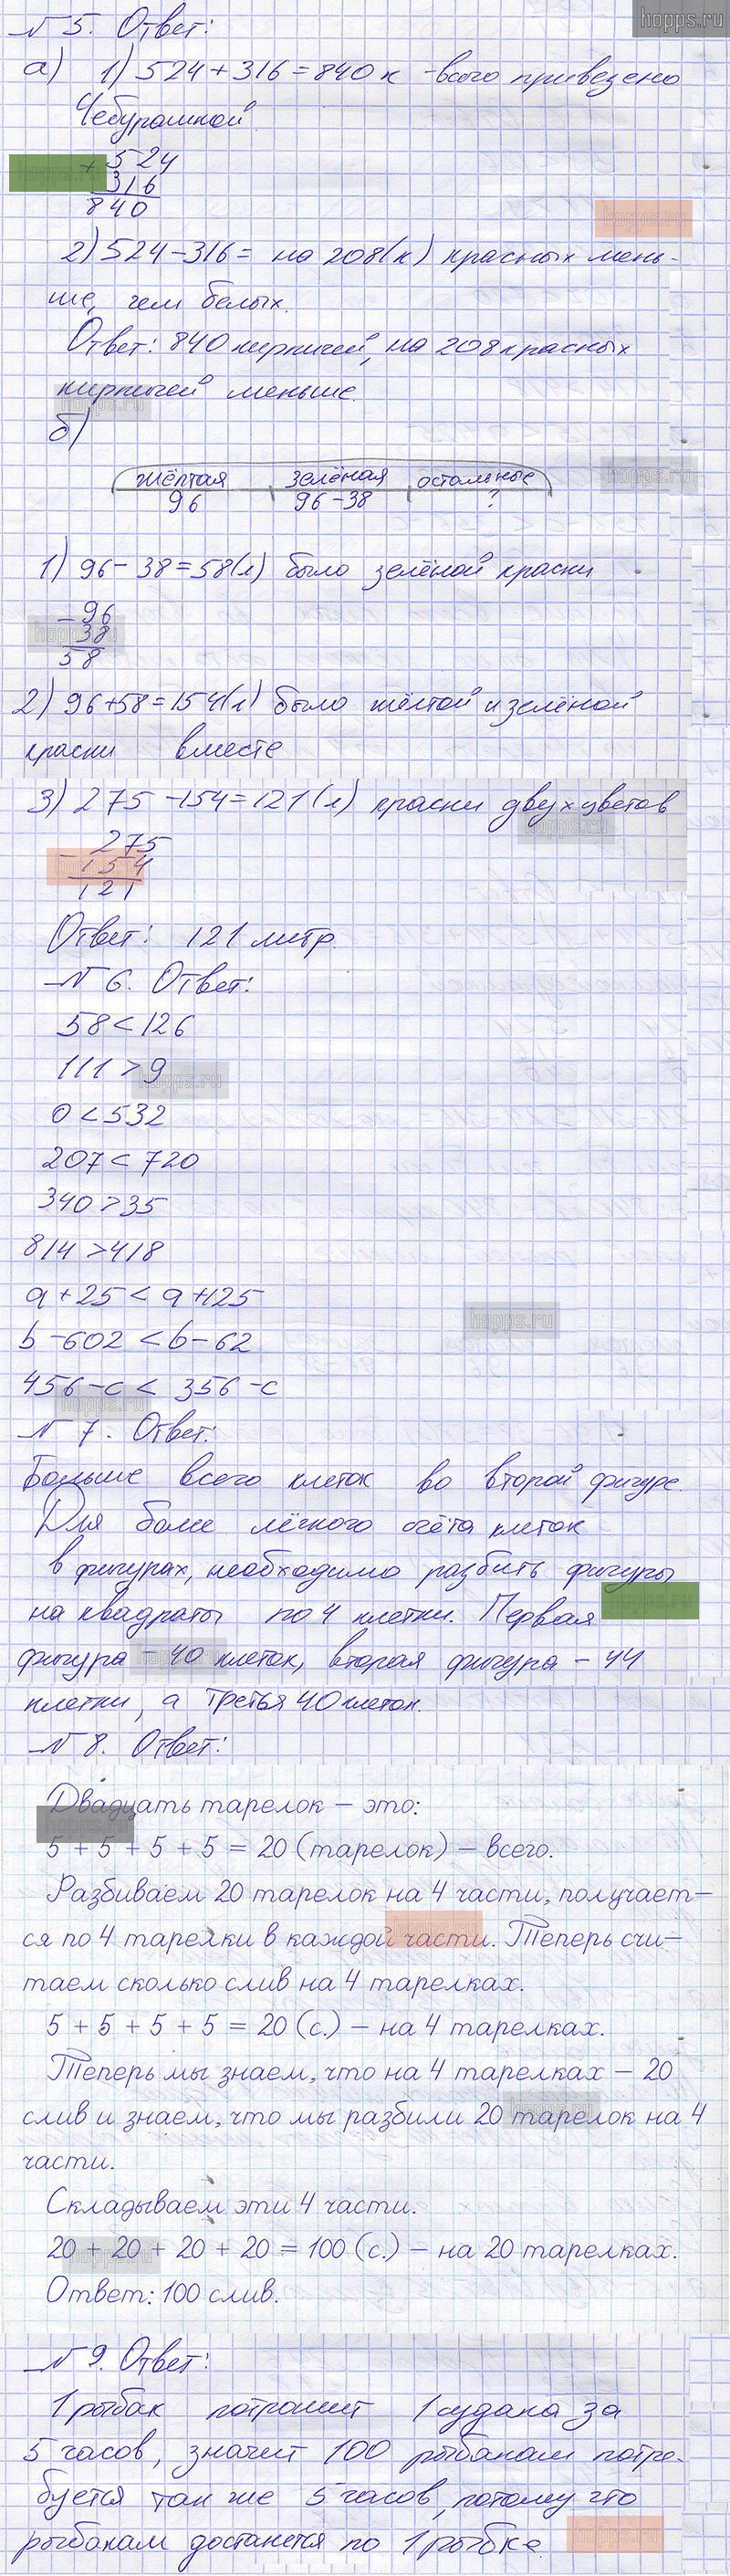 hopps.ru
№5. Ответ:
а) 1) 524+316=840 к -всего привезено
Чебурашкой.
+ 524
316
840
hopps.ru
2) 524-316= на 208(к) красных мень-
ше, чем белых.
Ответ: 840 кирпичей, на 208 красных
кирпичей меньше.
hopps.ru
б)
жёлтая зелёная остальные
96 96-38 ?
hopps.ru
1) 96-38=58(л) было зелёной краски
- 96
38
58
hopps.ru
2) 96+58=154(л) было жёлтой и зелёной
краски вместе
3) 275-154=121(л) краски двух цветов
hopps.ru
- 275
154
121
Ответ: 121 литр.
№6. Ответ:
58<126
111>9
hopps.ru
0<532
207<720
340>35
814>418
a+25<a+125
hopps.ru
b-602<b-62
456-c<356-c
hopps.ru
№7. Ответ:
Больше всего клеток во второй фигуре.
Для более лёгкого счёта клеток
в фигурах, необходимо разбить фигуры
на квадраты по 4 клетки. Первая
фигура -40 клеток, вторая фигура -44
клетки, а третья 40 клеток.
№8. Ответ:
Двадцать тарелок – это:
5 + 5 + 5 + 5 = 20 (тарелок) – всего.
Разбиваем 20 тарелок на 4 части, получает-
ся по 4 тарелки в каждой части. Теперь счи-
таем сколько слив на 4 тарелках.
5 + 5 + 5 + 5 = 20 (с.) – на 4 тарелках.
Теперь мы знаем, что на 4 тарелках – 20
слив и знаем, что мы разбили 20 тарелок на 4
части.
Складываем эти 4 части.
20 + 20 + 20 + 20 = 100 (с.) – на 20 тарелках.
hopps.ru
Ответ: 100 слив.
№9. Ответ:
1 рыбак потрошит 1 судака за
5 часов, значит 100 рыбакам потре-
буется так же 5 часов, потому что
рыбакам достанется по 1 рыбке.
hopps.ru